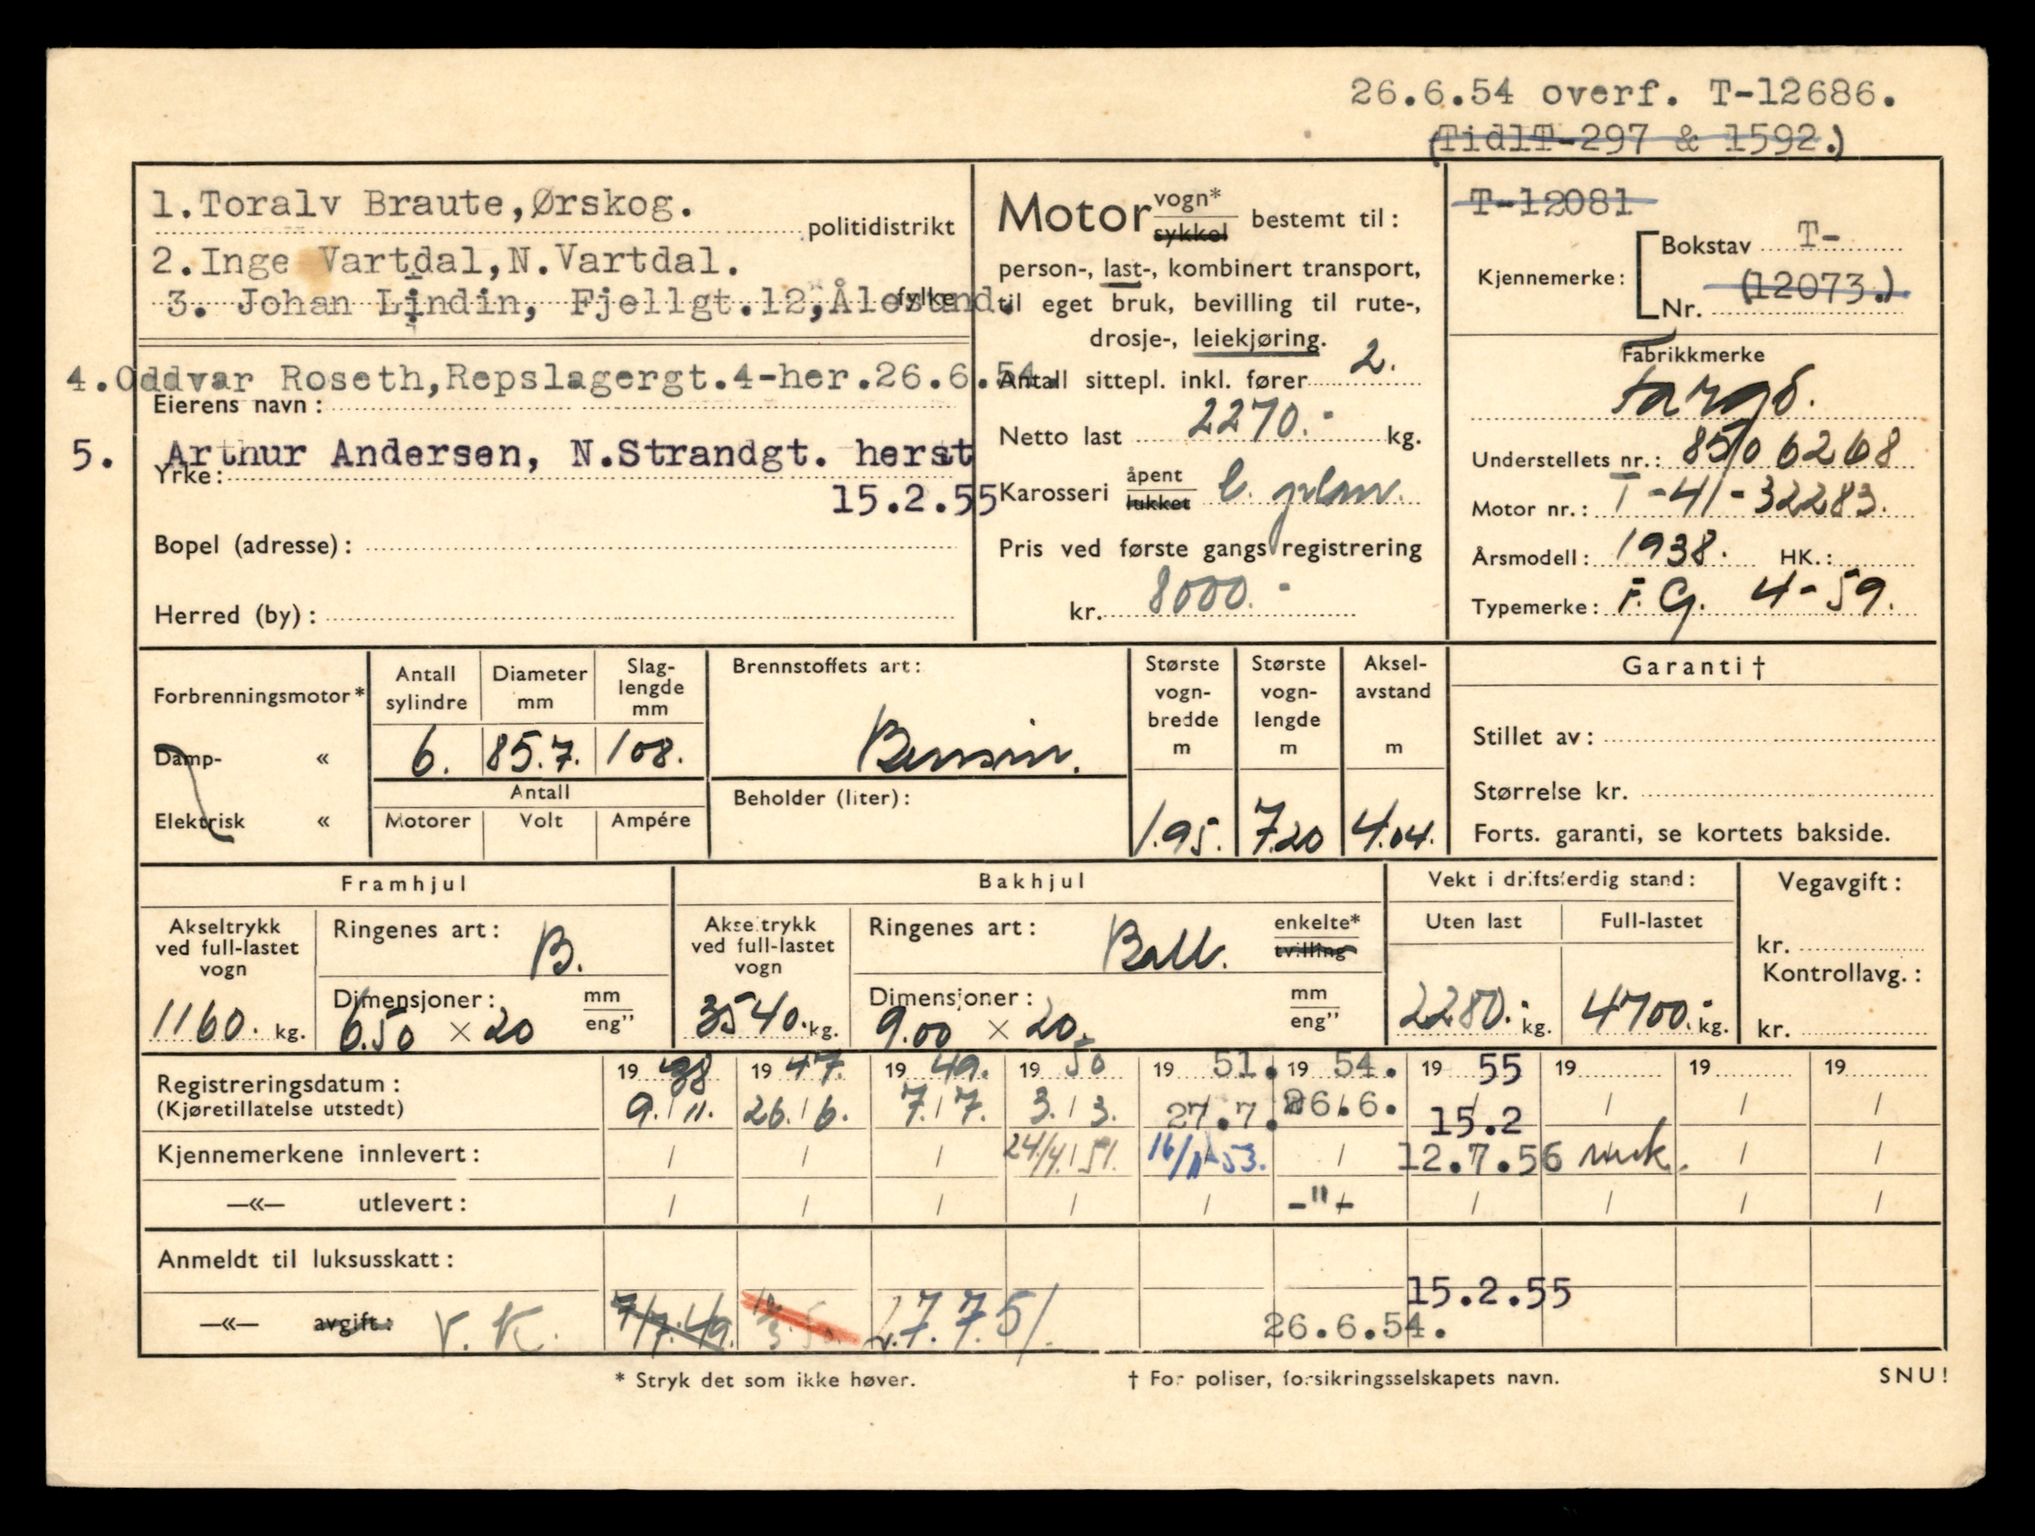 26.6.54 overf. T-12686.
(TidlT-297 & 1592.)
1.Toralv Braute,Ørskog.
politidistrikt
2.Inge Vartdal,N.Vartdal.
3. Johan Lindin, Fjellgt.12,Ålesund.
fylke
4.Oddvar Roseth,Repslagergt.4-her.26.6.54.
Eierens navn:
5. Arthur Andersen, N.Strandgt. herst
Yrke:
15.2.55
Bopel (adresse):
Herred (by):
Motor vogn* sykkel bestemt til:
person-, last-, kombinert transport,
til eget bruk, bevilling til rute-,
drosje-, leiekjøring.
Antall sittepl. inkl. fører 2.
Netto last 2270.- kg.
Karosseri åpent lukket l. plan.
Pris ved første gangs registrering
kr. 8000.-
T-12081
Kjennemerke: Bokstav T-
Nr. (12073.)
Fabrikkmerke
Fargo.
Understellets nr.: 8506268
Motor nr.: T-41-32283.
Årsmodell: 1938. HK.:
Typemerke: F.G. 4-59.
Forbrenningsmotor*
Damp- «
Elektrisk «
Antall sylindre
Diameter mm
Slag-lengde mm
6. 85.7. 108.
Antall
Motorer Volt Ampére
Brennstoffets art:
Bensin.
Beholder (liter):
Største vogn-bredde m
Største vogn-lengde m
Aksel-avstand m
1.95. 7.20 4.04.
Garanti †
Stillet av:
Størrelse kr.
Forts. garanti, se kortets bakside.
Framhjul
Akseltrykk ved full-lastet vogn
1160. kg.
Ringenes art: B.
Dimensjoner: mm eng"
6.50 × 20
Bakhjul
Akseltrykk ved full-lastet vogn
3540. kg.
Ringenes art: Ball. enkelte* tvilling
Dimensjoner: mm eng"
9.00 × 20.
Vekt i driftsferdig stand:
Uten last Full-lastet
2280.- kg. 4700.- kg.
Vegavgift:
kr.
Kontrollavg.:
kr.
19 38 19 47. 19 49. 19 50 19 51. 19 54. 19 55 19 19 19
Registreringsdatum:
(Kjøretillatelse utstedt)
9./11. 26./6. 7./7. 3./3. 27.7. 26.6. 15.2
Kjennemerkene innlevert: 24/4.51. 16/11-53. 12.7.56 vrak.
—«— utlevert: -"-
Anmeldt til luksusskatt:
15.2.55
—«— avgift: V.K. 7/7.49. 27.7.51. 26.6.54.
* Stryk det som ikke høver.
† For poliser, forsikringsselskapets navn.
SNU!